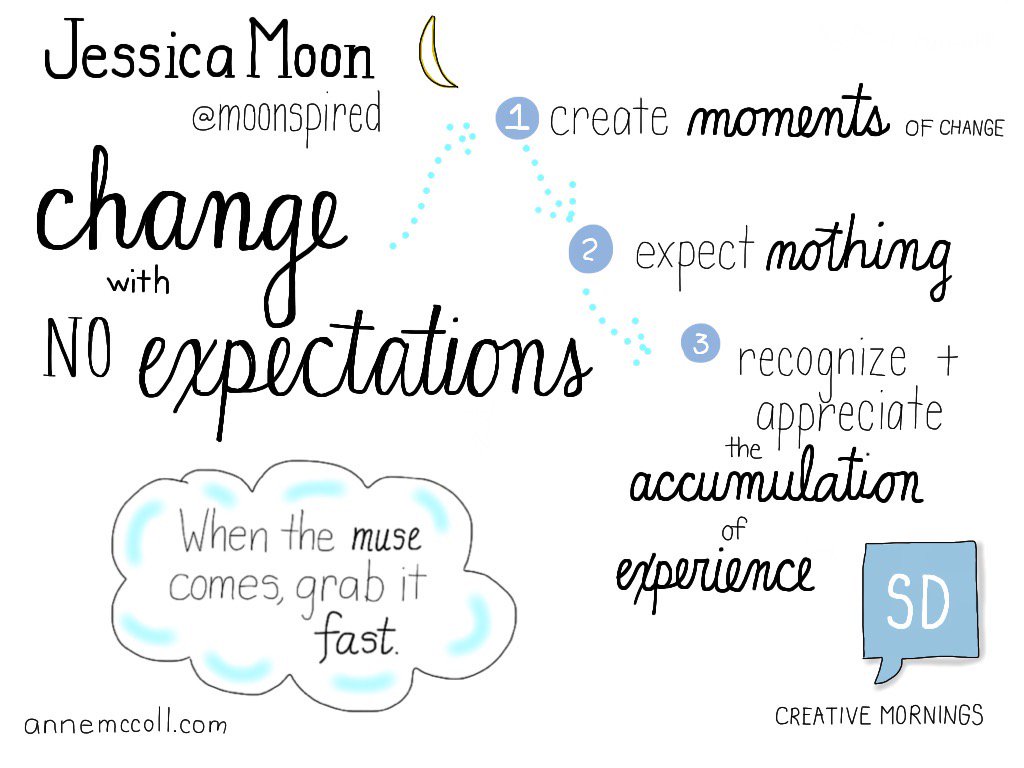 Jessica Moon
@moonspired
change
with
NO expectations
1 create moments OF CHANGE
2 expect nothing
3 recognize +
appreciate
the
accumulation
of
experience
When the muse
comes, grab it
fast.
SD
CREATIVE MORNINGS
annemccoll.com